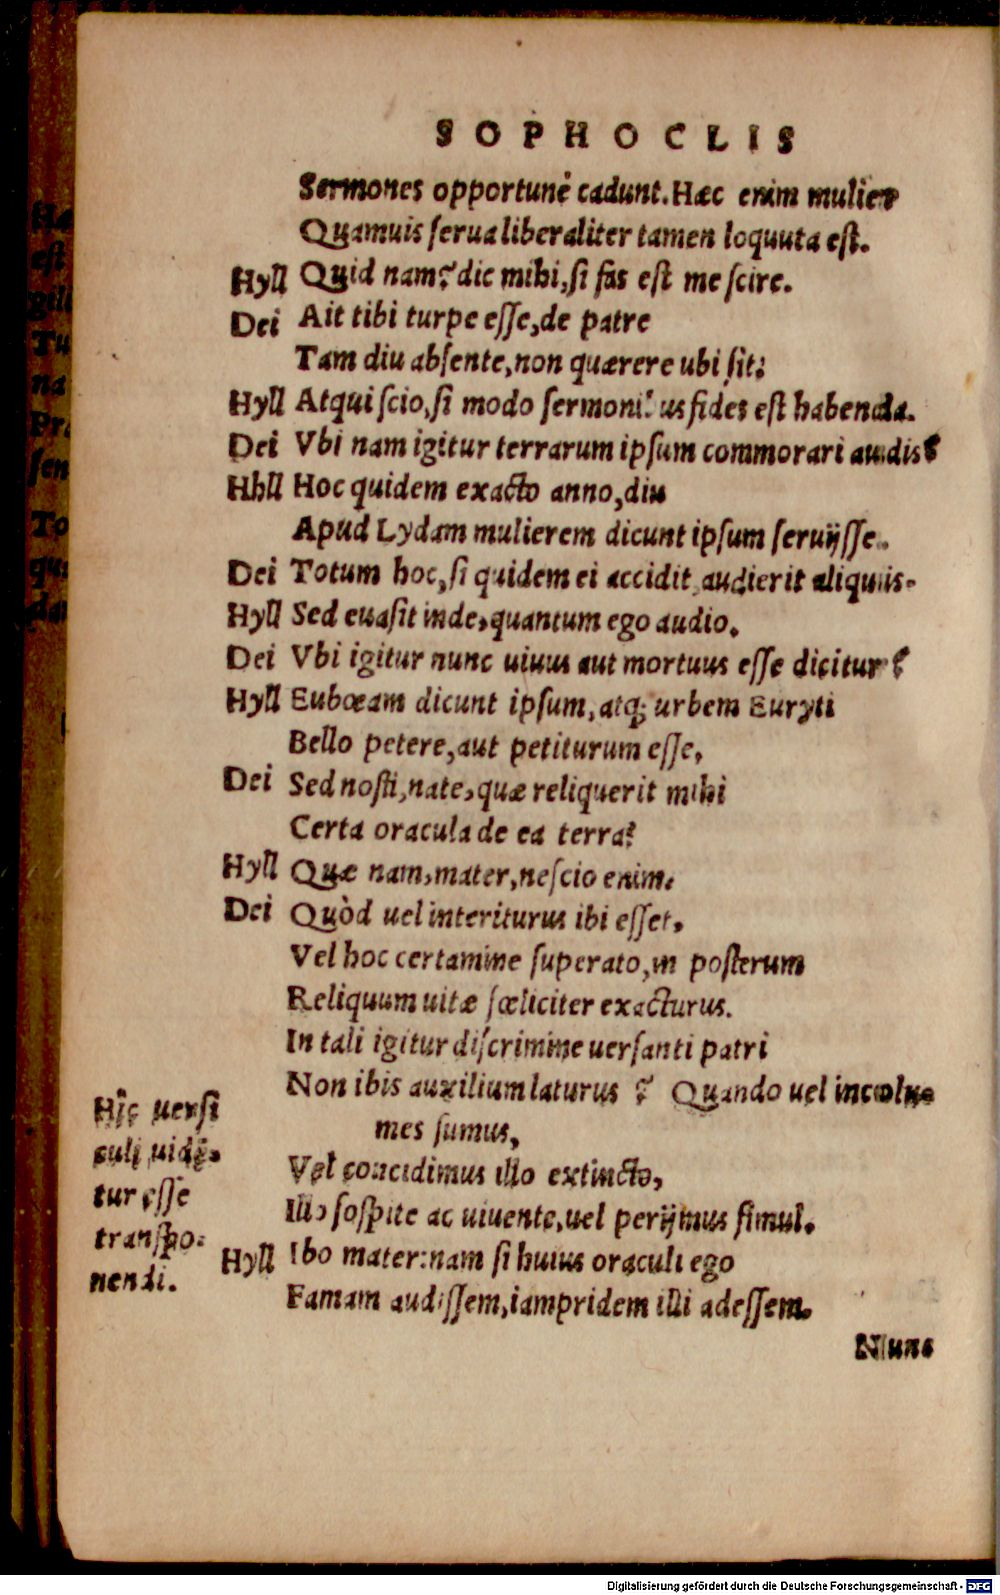 SOPHOCLIS
Sermones opportunè cadunt. Hæc enim mulier
Quamuis serua liberaliter tamen loquuta est.
Hyll Quid nam? dic mihi, si fas est me scire.
Dei Ait tibi turpe esse, de patre
Tam diu absente, non quærere ubi sit.
Hyll Atqui scio, si modo sermonibus fides est habenda.
Dei Vbi nam igitur terrarum ipsum commorari audis?
Hhll Hoc quidem exacto anno, diu
Apud Lydam mulierem dicunt ipsum seruijsse.
Dei Totum hoc, si quidem ei accidit, audierit aliquis.
Hyll Sed euasit inde, quantum ego audio.
Dei Vbi igitur nunc uiuus aut mortuus esse dicitur?
Hyll Eubœam dicunt ipsum, atq; urbem Euryti
Bello petere, aut petiturum esse.
Dei Sed nosti, nate, quæ reliquerit mihi
Certa oracula de ea terra?
Hyll Quæ nam, mater, nescio enim.
Dei Quòd uel interiturus ibi esset,
Vel hoc certamine superato, in posterum
Reliquum uitæ fœliciter exacturus.
In tali igitur discrimine uersanti patri
Non ibis auxilium laturus? Quando uel incolu-
mes sumus,
Vel concidimus illo extincto,
Illo sospite ac uiuente, uel perijmus simul.
Hyll Ibo mater: nam si huius oraculi ego
Famam audissem, iampridem illi adessem.
Nunc
Hîc uersi
culi uidẽ-
tur esse
transpo-
nendi.
Ha
est
Tu
na
Pra
sen
To
Digitalisierung gefördert durch die Deutsche Forschungsgemeinschaft - DFG